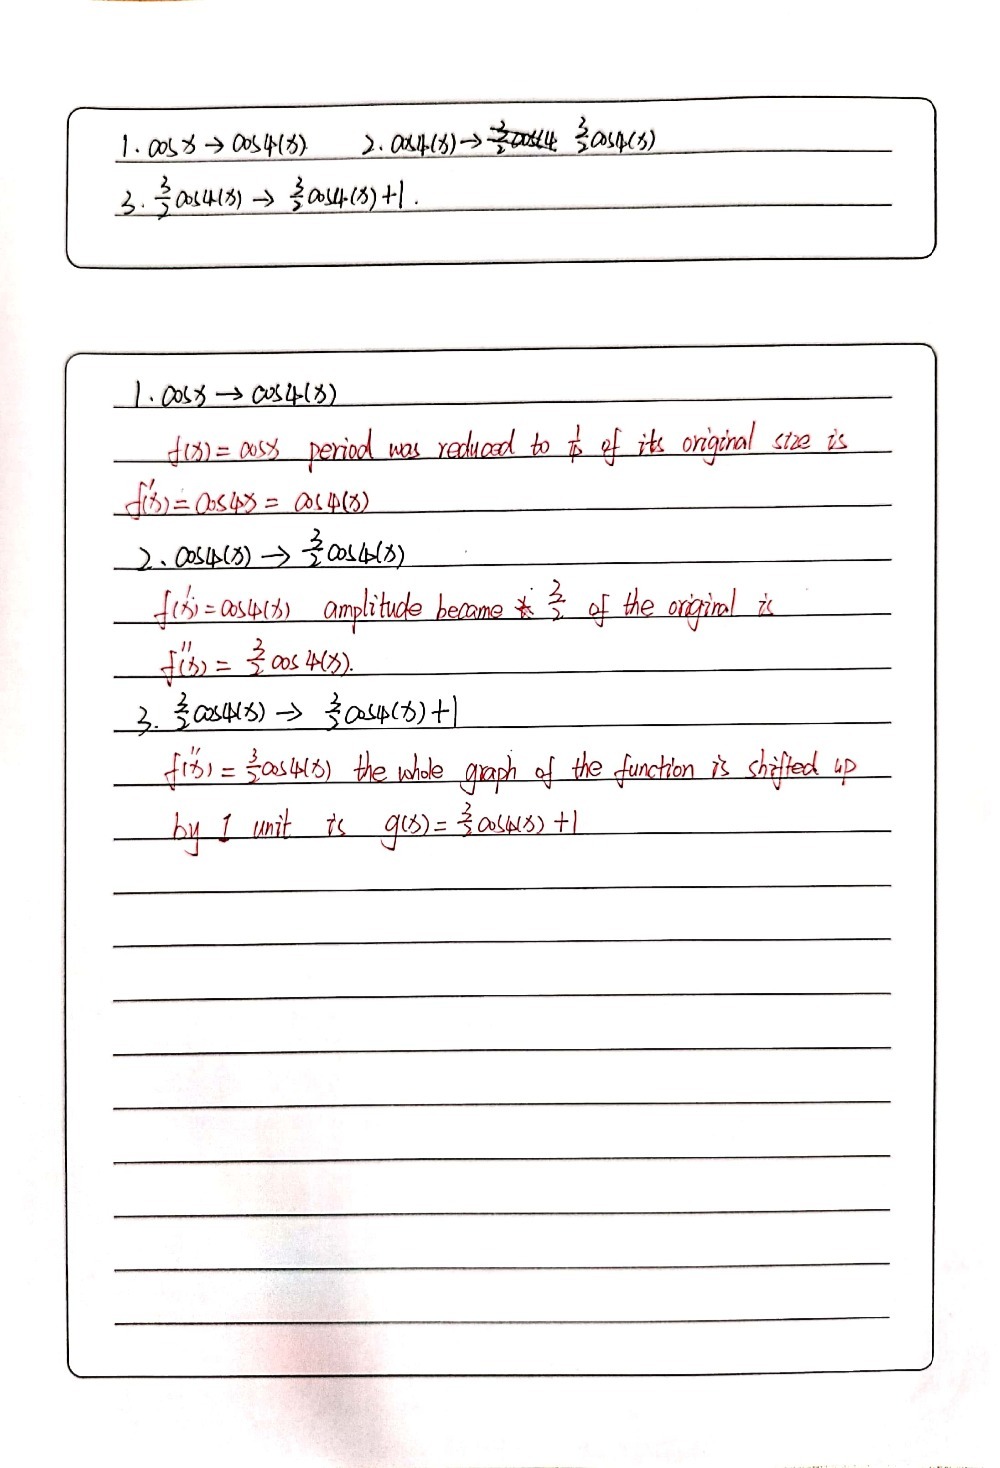 1. cosx → cos4(x) 2. cos4(x) → 3/2cos4(x)
3. 3/2cos4(x) → 3/2cos4(x)+1.
1. cosx → cos4(x)
f(x) = cosx period was reduced to of its original size is
f'(x) = cos4x = cos4(x)
2. cos4(x) → 3/2cos4(x)
f'(x) = cos4(x) amplitude became 3/2 of the original is
f''(x) = 3/2cos4(x).
3. 3/2cos4(x) → 3/2cos4(x)+1
f''(x) = 3/2cos4(x) the whole graph of the function is shifted up
by 1 unit is g(x) = 3/2cos4(x)+1